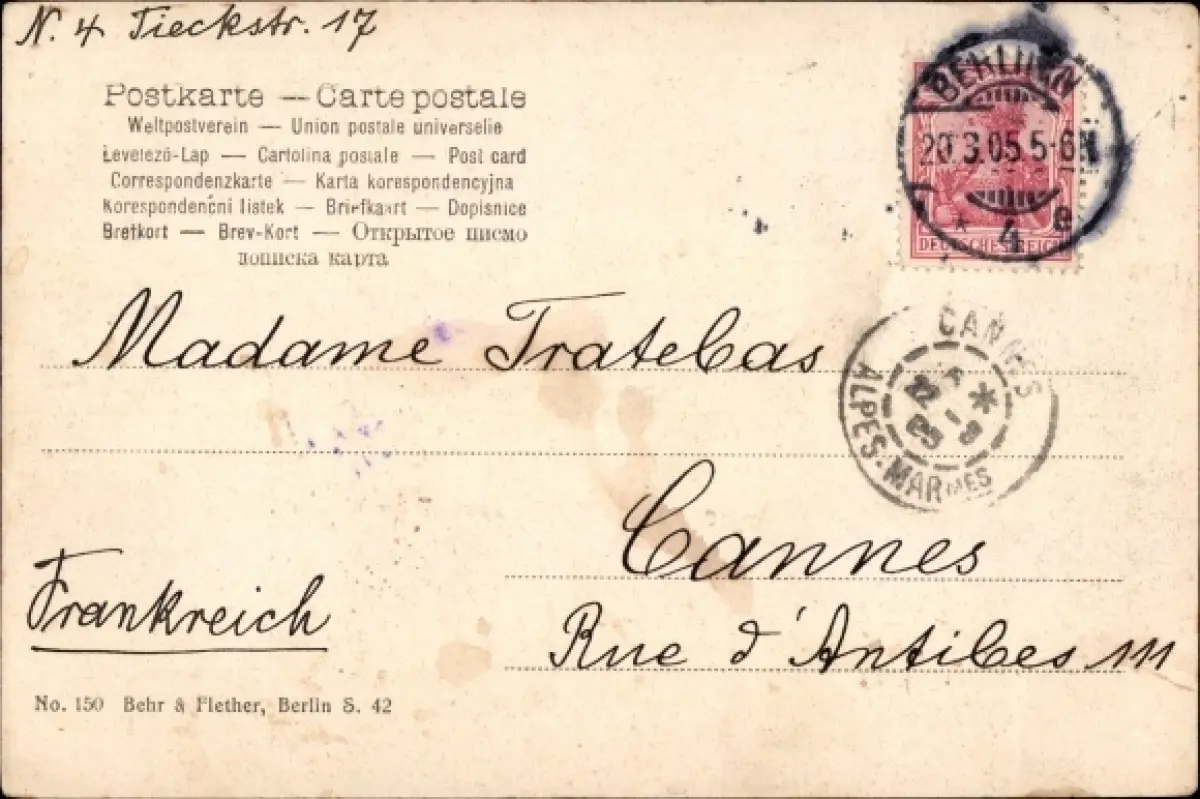 N. 4 Tieckstr. 17
Postkarte — Carte postale
Weltpostverein — Union postale universelle
Levelező-Lap — Cartolina postale — Post card
Correspondenzkarte — Karta korespondencyjna
Korespondenčni listek — Briefkaart — Dopisnice
Brefkort — Brev-Kort — Открытое письмо
дописна карта
BERLIN N
20.3.05.5-6N
* 4 e
DEUTSCHES REICH
Madame Tratebas
CANNES
ALPES-MARMES
Cannes
Frankreich
Rue d'Antibes 111
No. 150 Behr & Flether, Berlin S. 42